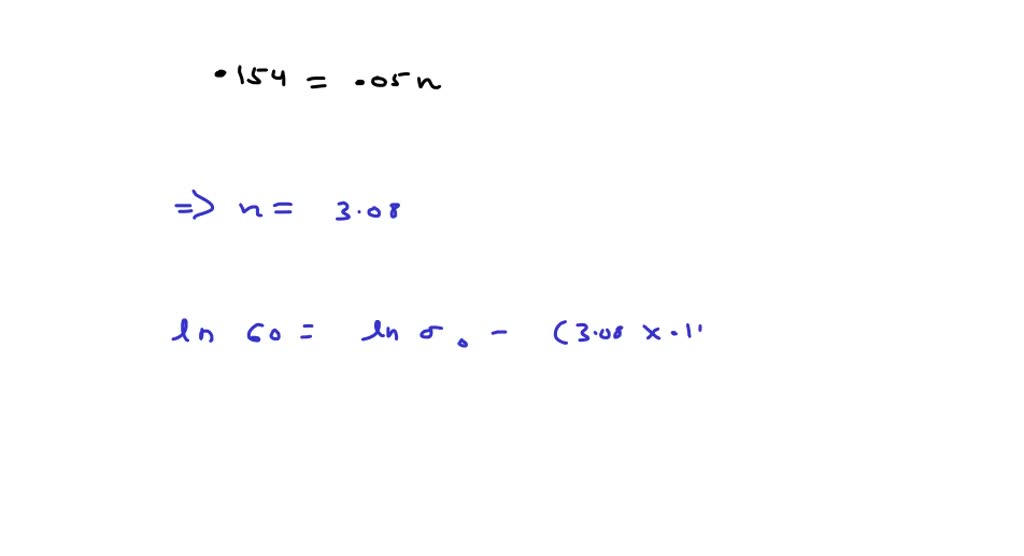 .154 = .05n
=> n = 3.08
ln 60 = ln σ₀ - (3.08 x .1